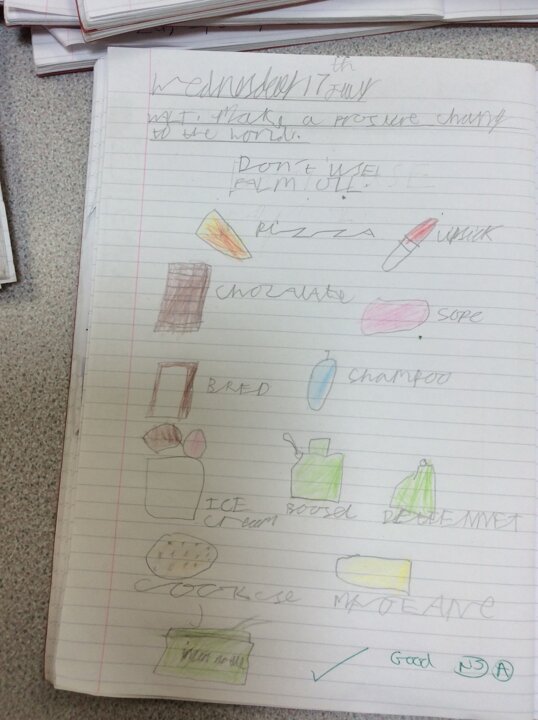 Wednesday 17th July
WALT: Make a prosive change
to the world.
DON'T USE
PALM OIL.
PIZZZA
LIPSICK
CHOZALATE
SOPE
BRED
SHAMPOO
ICE
cream
COOKESE
Good NS A